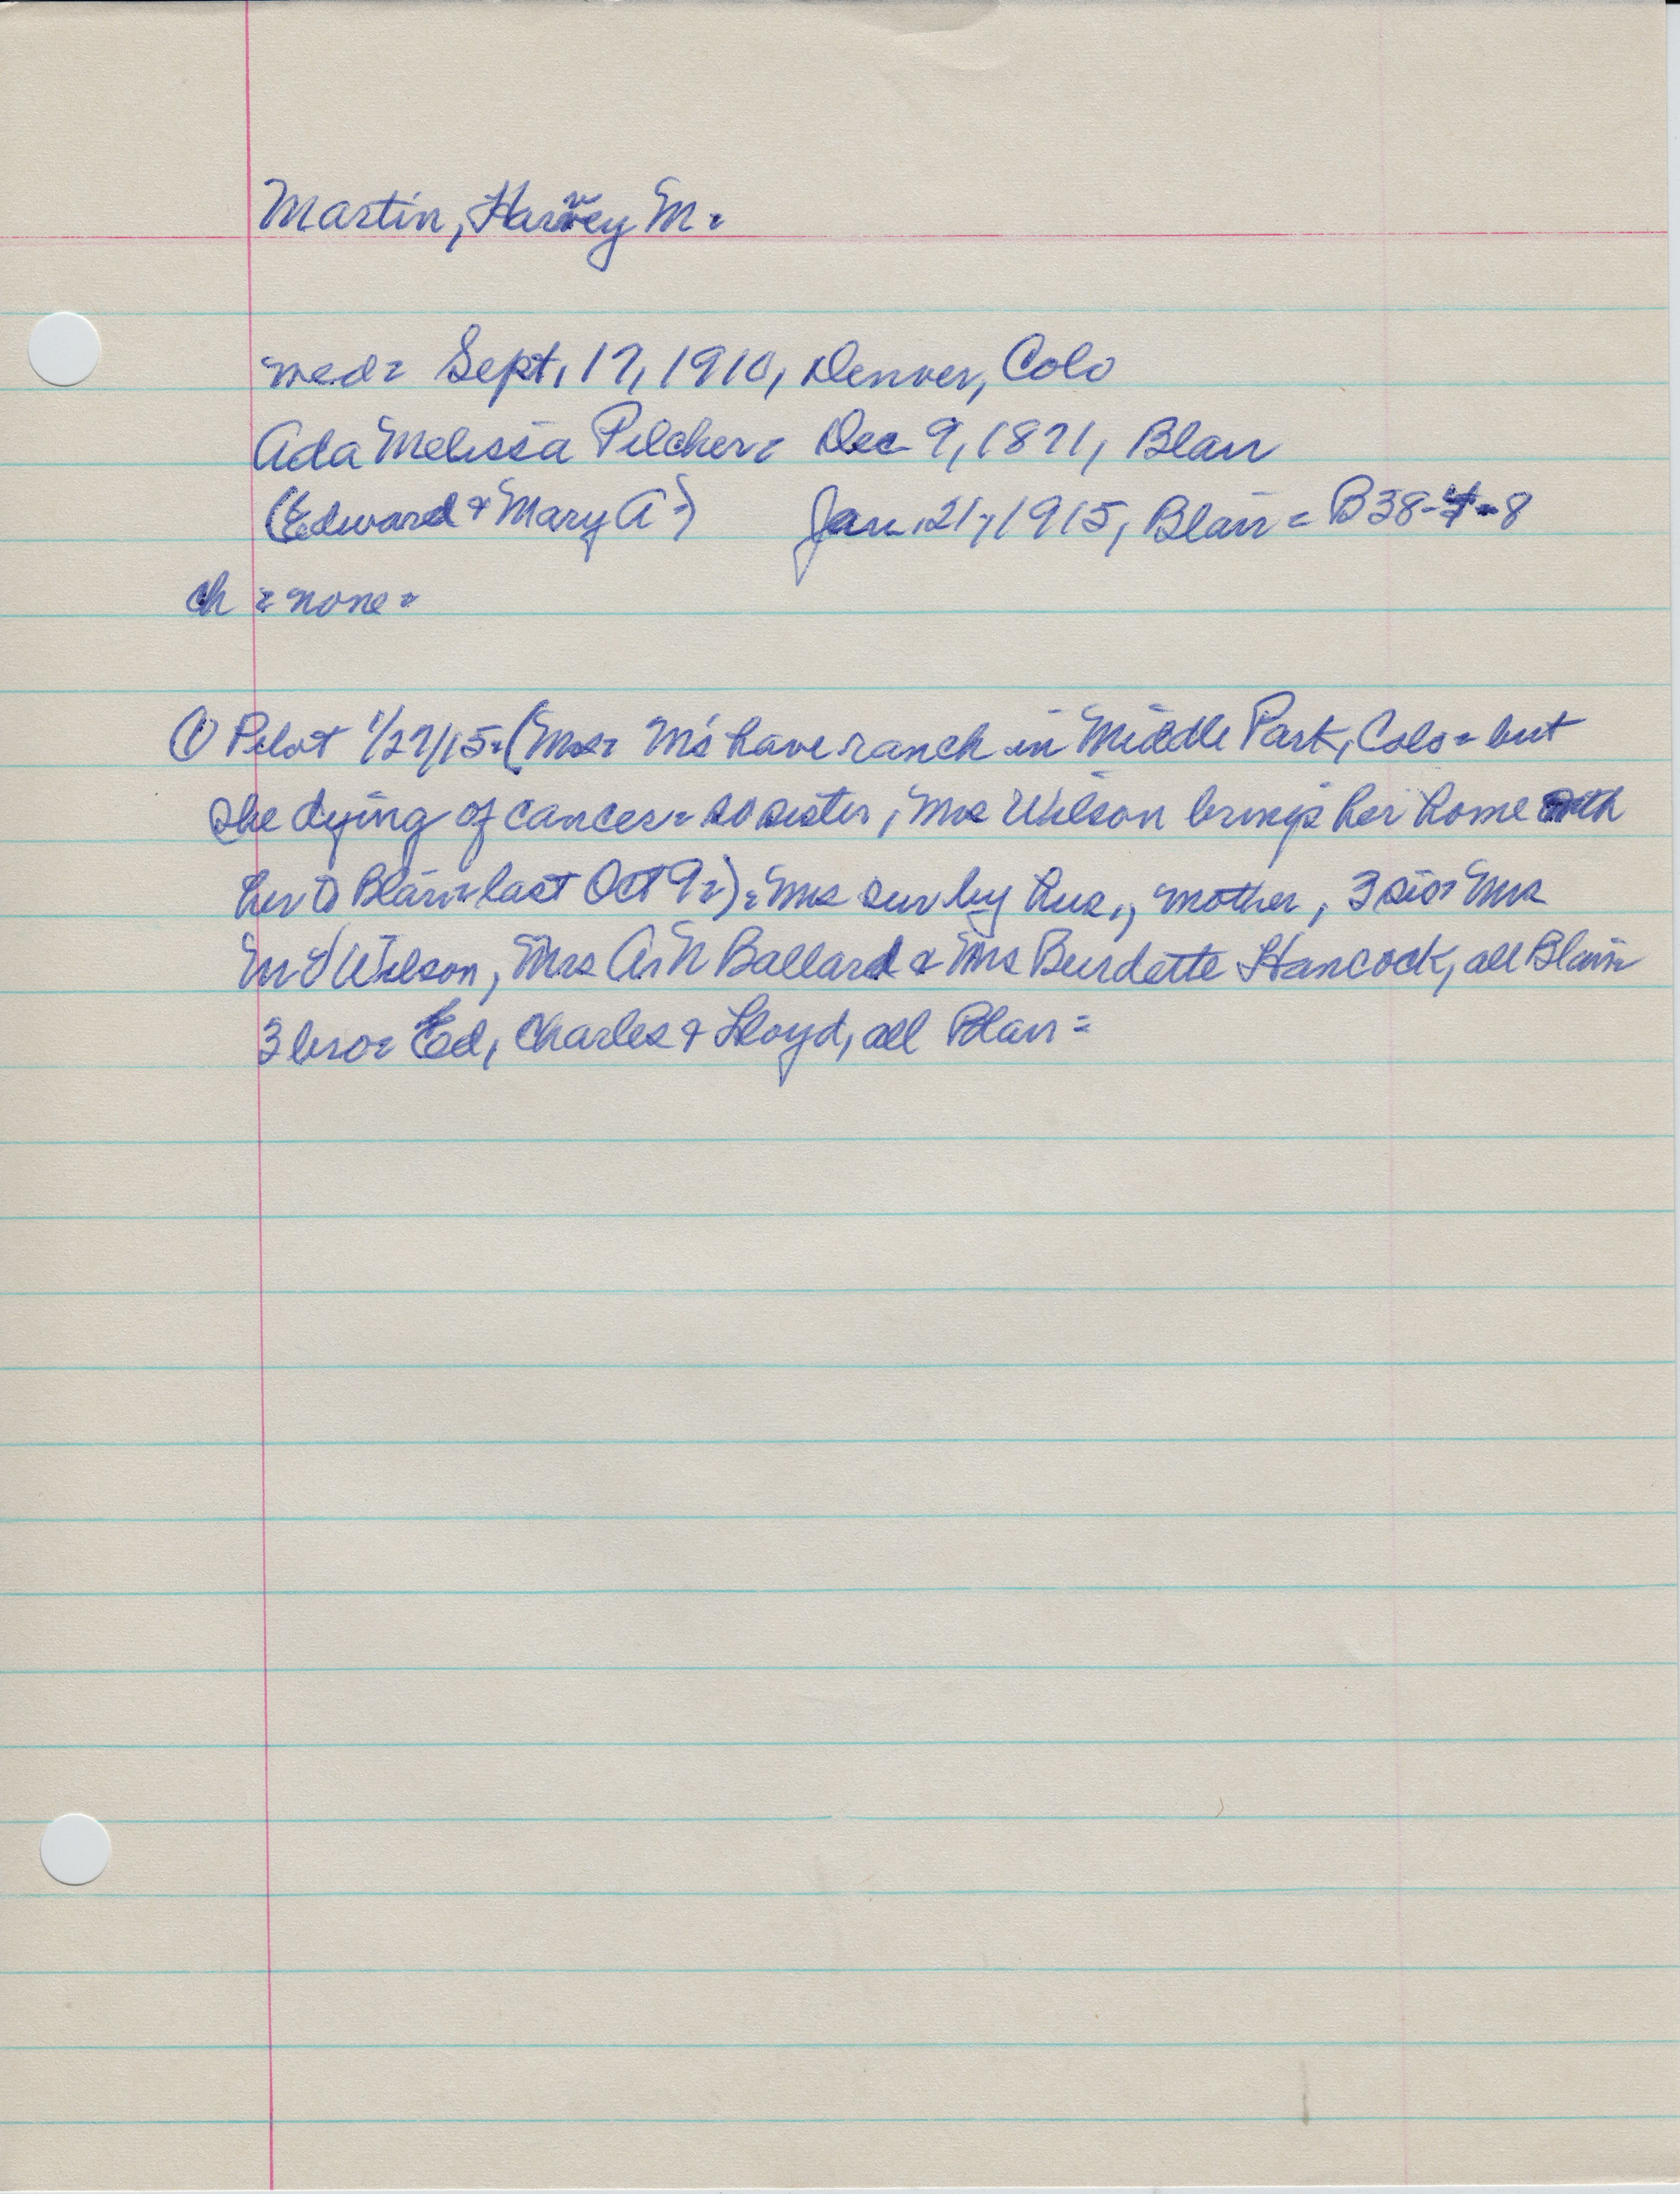 Martin, Harvey M.
wed= Sept. 17, 1910, Denver, Colo
Ada Melissa Pilcher= Dec 9, 1871, Blair
(Edward & Mary A=) Jan. 21, 1915, Blair = B38-4-8
ch = none =
① Pilot 1/27/15=(Mrs= M's have ranch in Middle Park, Colo= but
she dying of cancer= so sister, Mrs Wilson brings her home with
her to Blair= last Oct 9=)= Mrs sur by hus., mother, 3 sis= Mrs
Wilson, Mrs A N Ballard & Mrs Burdette Hancock, all Blair=
3 bro= Ed, Charles & Lloyd, all Blair =